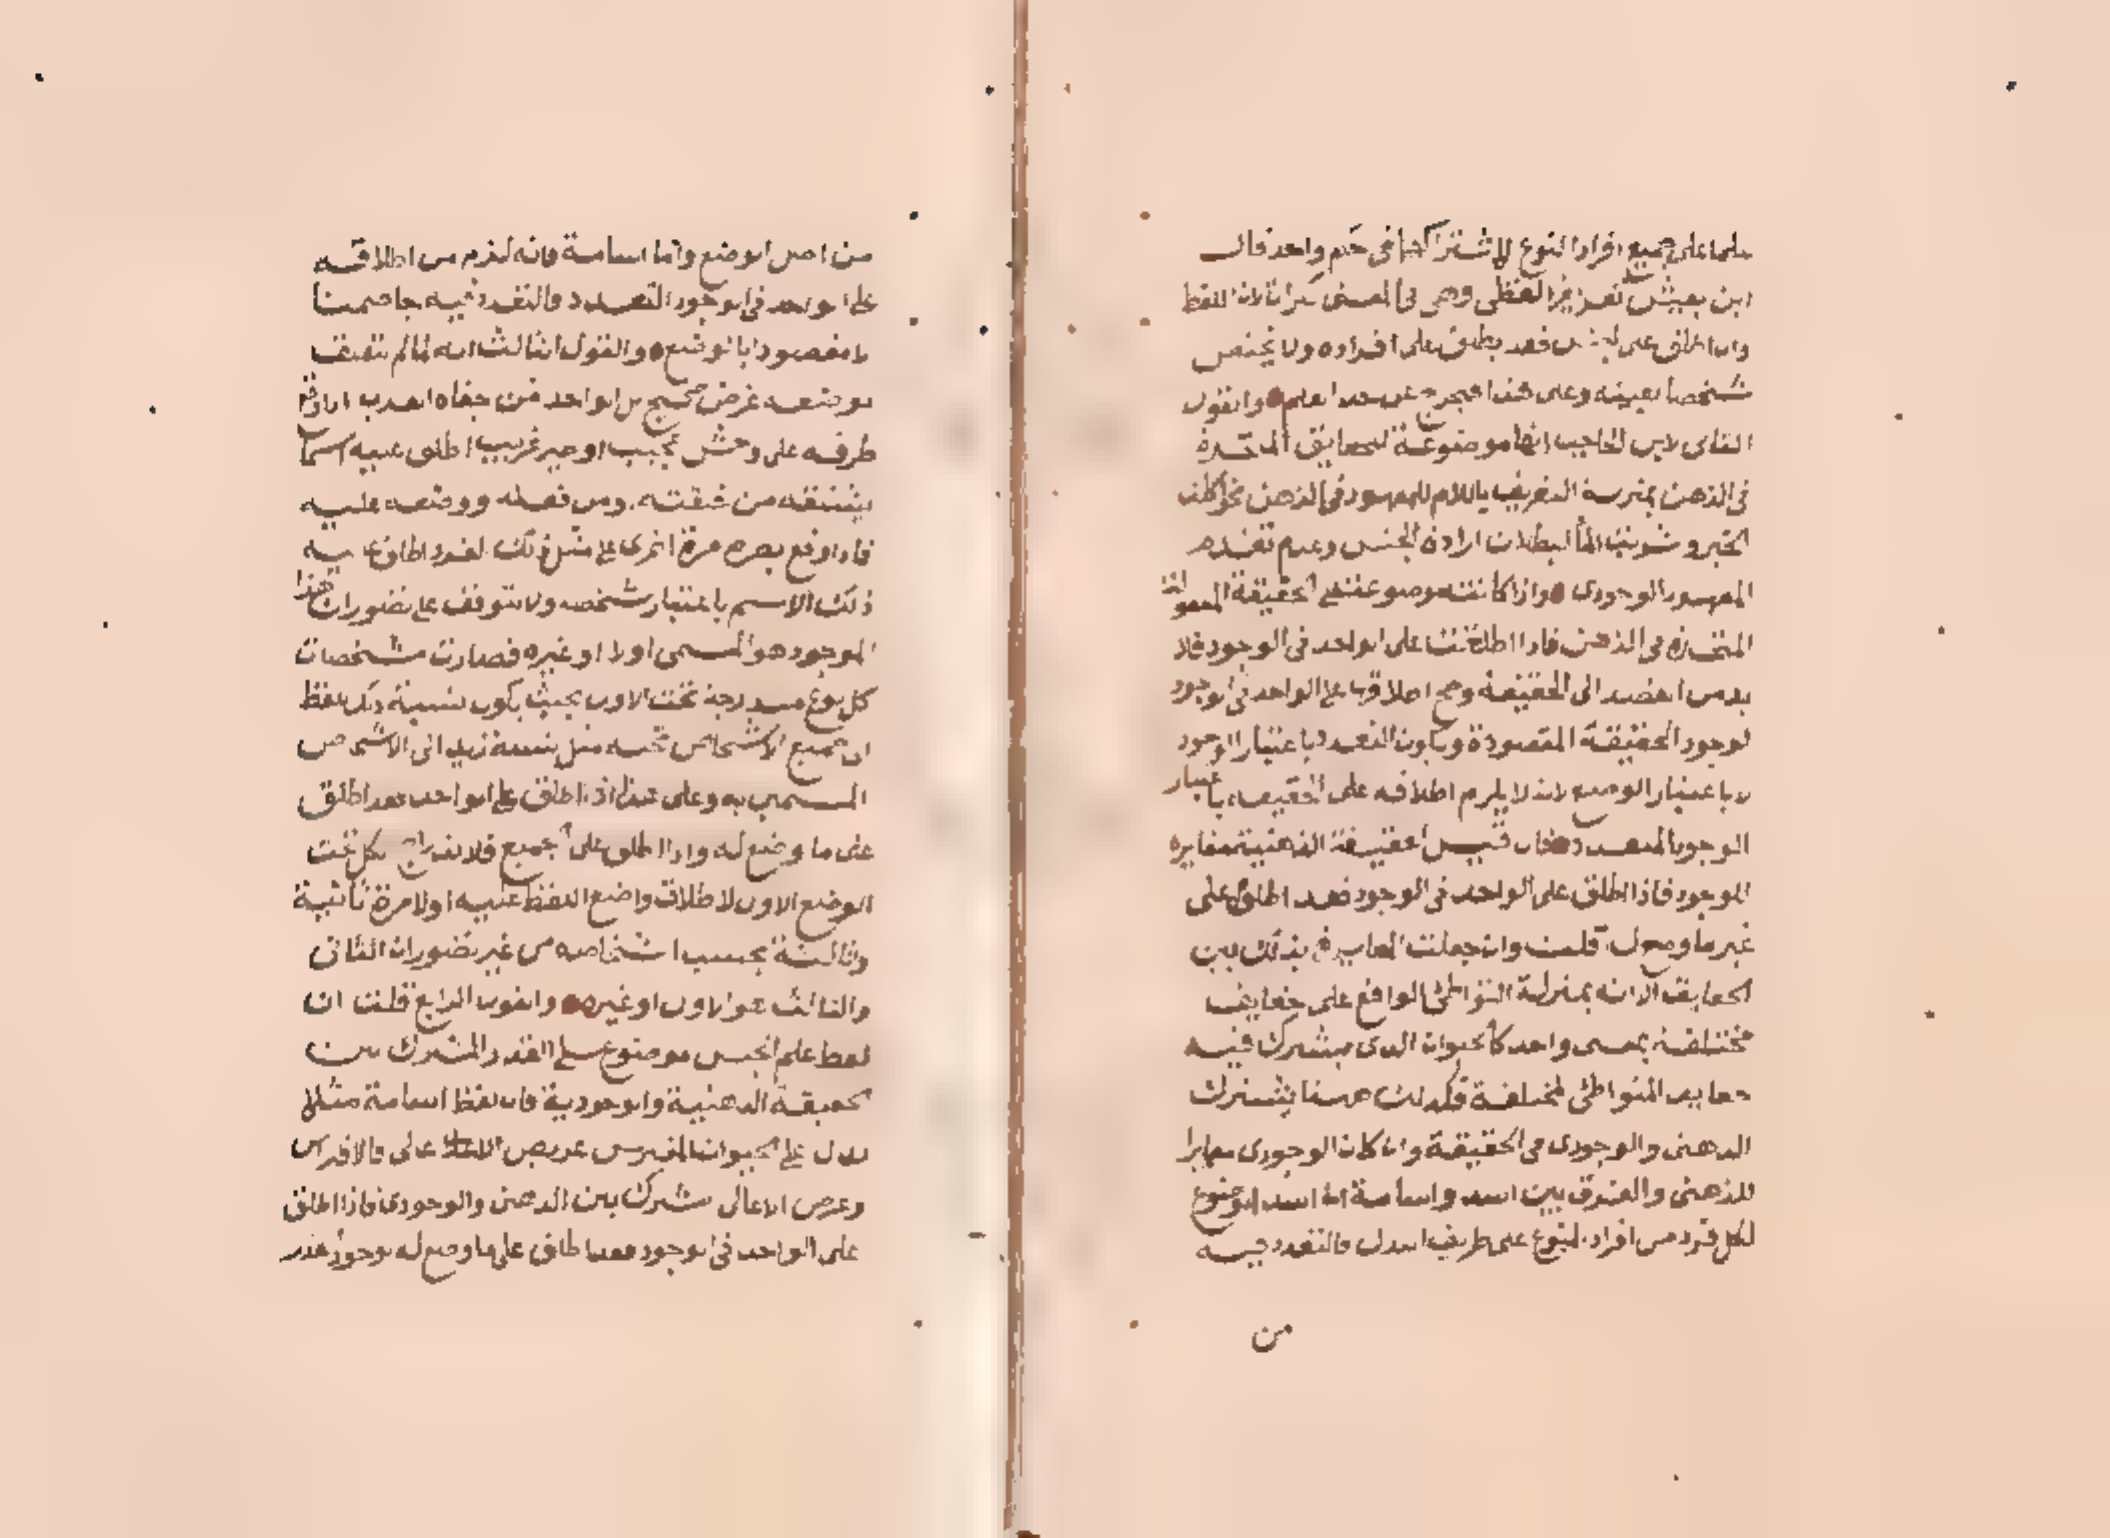 علما على جميع افراد النوع لاشتراكها في حكم واحد قال
ابن يعيش تعريفها لفظي وهي في المعنى نكرات لان اللفظ
وان اطلق على الجنس فقد يطلق على افراده ولا يختص
شخصا بعينه وعلى هذا فيخرج عن حد العلم والقول
الثاني لابن الحاجب انها موضوعة للحقايق المتحدة
في الذهن بمنزلة التعريف باللام للمعهود في الذهن نحو اكلت
الخبز وشربت الما لبطلان ارادة الجنس وعدم تقدم
المعهود الوجودي واذا كانت موضوعة على الحقيقة المعقولة
المتحدة في الذهن فاذا اطلقت على الواحد في الوجود فلا
بد من القصد الى الحقيقة وصح اطلاقها على الواحد في الوجود
لوجود الحقيقة المقصودة ويكون التعدد باعتبار الوجود
لا باعتبار الوضع لانه لا يلزم اطلاقه على الحقيقة باعتبار
الوجود المتعدد فان قيل الحقيقة الذهنية مغايرة
للوجود فاذا اطلق على الواحد في الوجود فقد اطلق على
غير ما وضع له قلت وان جعلت المغايرة بذلك بين
الحقايق الا انه بمنزلة التواطئ الواقع على حقايق
مختلفة بمعنى واحد كالحيوان الذي يشترك فيه
حقايق المتواطئ المختلفة فكذلك هنا يشترك
الذهني والوجودي في الحقيقة وان كان الوجودي مغايرا
للذهني والفرق بين اسد واسامة ان اسد الموضوع
لكل فرد من افراد النوع على طريق البدل فالتعدد فيه
من
من اصل الوضع واما اسامة فانه لزم من اطلاقه
على الواحد في الوجود التعدد فالتعدد فيه جا ضمنا
لا مقصودا بالوضع والقول الثالث انه لما لم يتعلق
بوضعه غرض صحيح بل الواحد من جفاة العرب اذا وقع
طرفه على وحش عجيب او طير غريب اطلق عليه اسما
يشتقه من خلقته او من فعله ووضعه عليه
فاذا وقع بصره مرة اخرى على مثل ذلك الفرد اطلق عليه
ذلك الاسم باعتبار شخصه ولا يتوقف على تصور ان هذا
الموجود هو المسمى اولا او غيره فصارت مشخصات
كل نوع مندرجة تحت الاول بحيث يكون نسبة ذلك اللفظ
الى جميع الاشخاص تحته مثل نسبة زيد الى الاشخاص
المسمين به وعلى هذا اذا اطلق على الواحد فقد اطلق
على ما وضع له واذا اطلق على الجميع فلاندراج الكل تحت
الوضع الاول لاطلاق واضع اللفظ عليه اولا مرة ثانية
وثالثة بحسب اشخاصه من غير تصور ان الثاني
والثالث هو الاول او غيره والقول الرابع قلت ان
لفظ علم الجنس موضوع على القدر المشترك بين
الحقيقة الذهنية والوجودية فان لفظ اسامة مثلا
يدل على الحيوان المفترس عريض الاعالي فالافتراس
وعرض الاعالي مشترك بين الذهني والوجودي فاذا اطلق
على الواحد في الوجود فقد اطلق على ما وضع له لوجود القدر